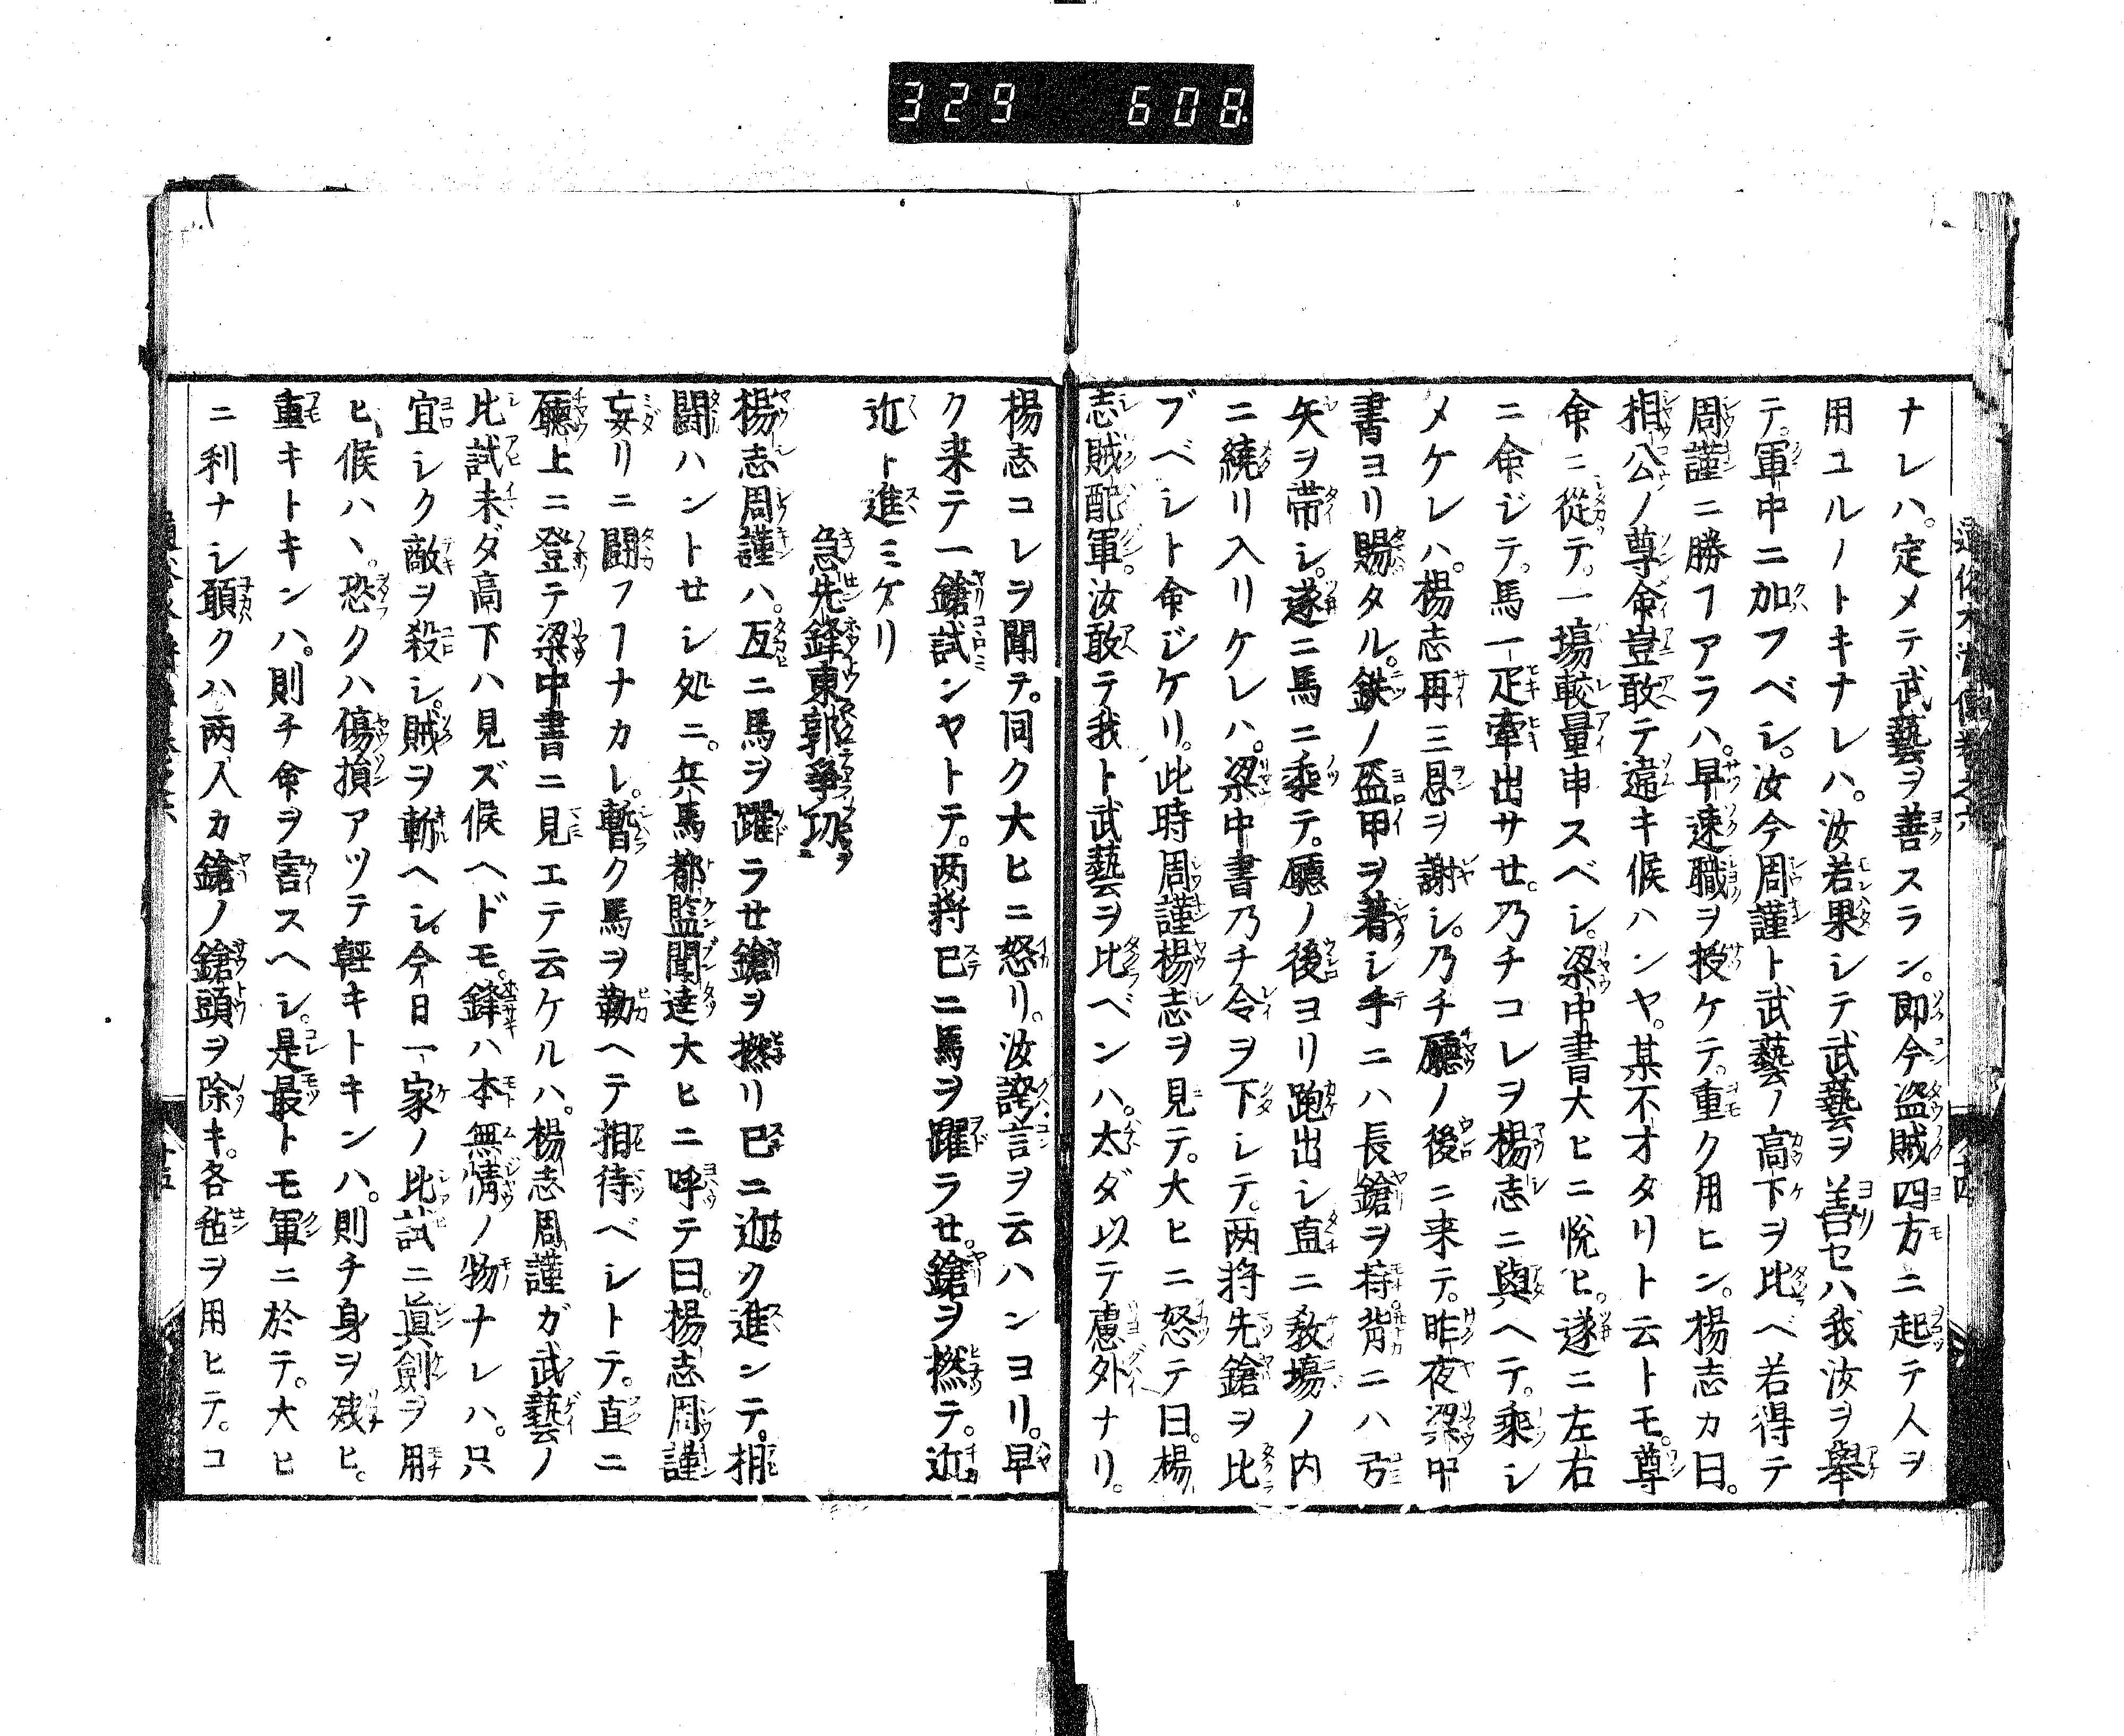 329 608
ナレハ。定メテ武藝ヲ善スラン。即今盗賊四方ニ起テ人ヲ
用ユルノトキナレハ。汝若果シテ武藝ヲ善セハ我汝ヲ擧
テ。軍中ニ加フベシ。汝今周謹ト武藝ノ高下ヲ比ベ若得テ
周謹ニ勝フアラハ。早速職ヲ授ケテ。重ク用ヒン。楊志カ曰。
相公ノ尊命豈敢テ違キ候ハンヤ。某不才タリト云トモ。尊
命ニ從テ。一塲較量申スベシ。梁中書大ヒニ悦ヒ。遂ニ左右
ニ命ジテ。馬一疋牽出サセ。乃チコレヲ楊志ニ與ヘテ。乘シ
メケレハ。楊志再三恩ヲ謝シ。乃チ廳ノ後ニ来テ。昨夜梁中
書ヨリ賜タル。鉄ノ盔甲ヲ著シ手ニハ長鎗ヲ持背ニハ弓
矢ヲ帶シ。遂ニ馬ニ乘テ。廳ノ後ヨリ跑出シ直ニ教塲ノ内
ニ繞リ入リケレハ。梁中書乃チ令ヲ下シテ。两将先鎗ヲ比
ブベシト命ジケリ。此時周謹楊志ヲ見テ。大ヒニ怒テ曰。楊
志賊配軍。汝敢テ我ト武藝ヲ比ベンハ。太ダ以テ慮外ナリ。
楊志コレヲ聞テ。同ク大ヒニ怒リ。汝誇言ヲ云ハンヨリ。早
ク来テ一鎗試ンヤトテ。两将已ニ馬ヲ躍ラセ。鎗ヲ撚テ。近
近ト進ミケリ
急先鋒東郭爭功
楊志周謹ハ。互ニ馬ヲ躍ラセ鎗ヲ撚リ已ニ近ク進ンテ。相
闘ハントセシ処ニ。兵馬都監聞達大ヒニ呼テ曰。楊志周謹
妄リニ闘フフナカレ。暫ク馬ヲ勒ヘテ相待ベシトテ。直ニ
廳上ニ登テ梁中書ニ見エテ云ケルハ。楊志周謹ガ武藝ノ
比試未ダ高下ハ見ズ候ヘドモ。鋒ハ本無情ノ物ナレハ。只
宜シク敵ヲ殺シ。賊ヲ斬ヘシ。今日一家ノ比試ニ眞劍ヲ用
ヒ候ハヽ。恐クハ傷損アツテ輕キトキンハ。則チ身ヲ残ヒ。
重キトキンハ。則チ命ヲ害スヘシ。是最トモ軍ニ於テ。大ヒ
ニ利ナシ願クハ两人カ鎗ノ鎗頭ヲ除キ。各毡ヲ用ヒテ。コ